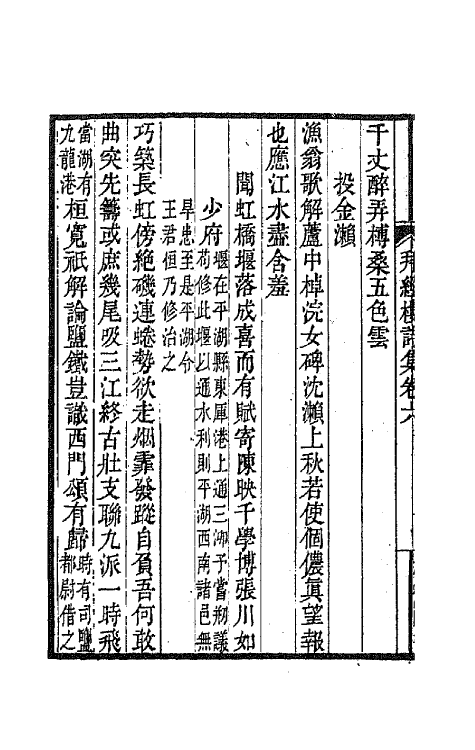 拜經樓詩集卷六
千丈醉弄榑桑五色雲
投金瀨
漁翁歌解蘆中棹浣女碑沈瀨上秋若使個儂眞望報
也應江水盡含羞
聞虹橋堰落成喜而有賦寄陳映千學博張川如
少府堰在平湖縣東厙港上通三泖予嘗剏議
苟修此堰以通水利則平湖西南諸邑無
旱患至是平湖令
王君恒乃修治之
巧築長虹傍絶磯連蜷勢欲走烟霏發蹤自負吾何敢
曲突先籌或庶幾尾吸三江終古壯支聯九派一時飛
當湖有
九龍港
桓寬祇解論鹽鐵豈識西門頌有歸
時有司鹽
都尉借之